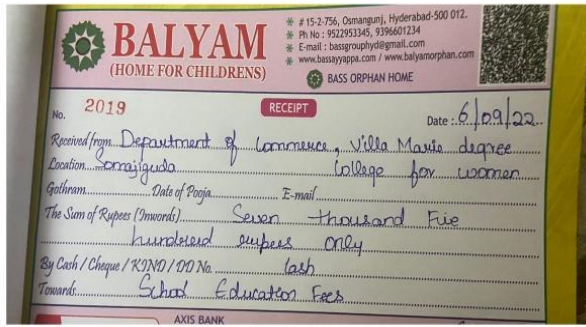 BALYAM
(HOME FOR CHILDRENS)
# 15-2-756, Osmangunj, Hyderabad-500 012.
Ph No : 9522953345, 9396601234
E-mail : bassgrouphyd@gmail.com
www.bassayyappa.com / www.balyamorphan.com
BASS ORPHAN HOME
No. 2019 RECEIPT Date : 6/09/22
Received from Department of Commerce, Villa Marie degree
Location Somajiguda College for women
Gothram Date of Pooja E-mail
The Sum of Rupees (Inwords) Seven thousand Five
hundered rupees only
By Cash / Cheque / KIND / DD No. Cash
Towards School Education Fees
AXIS BANK